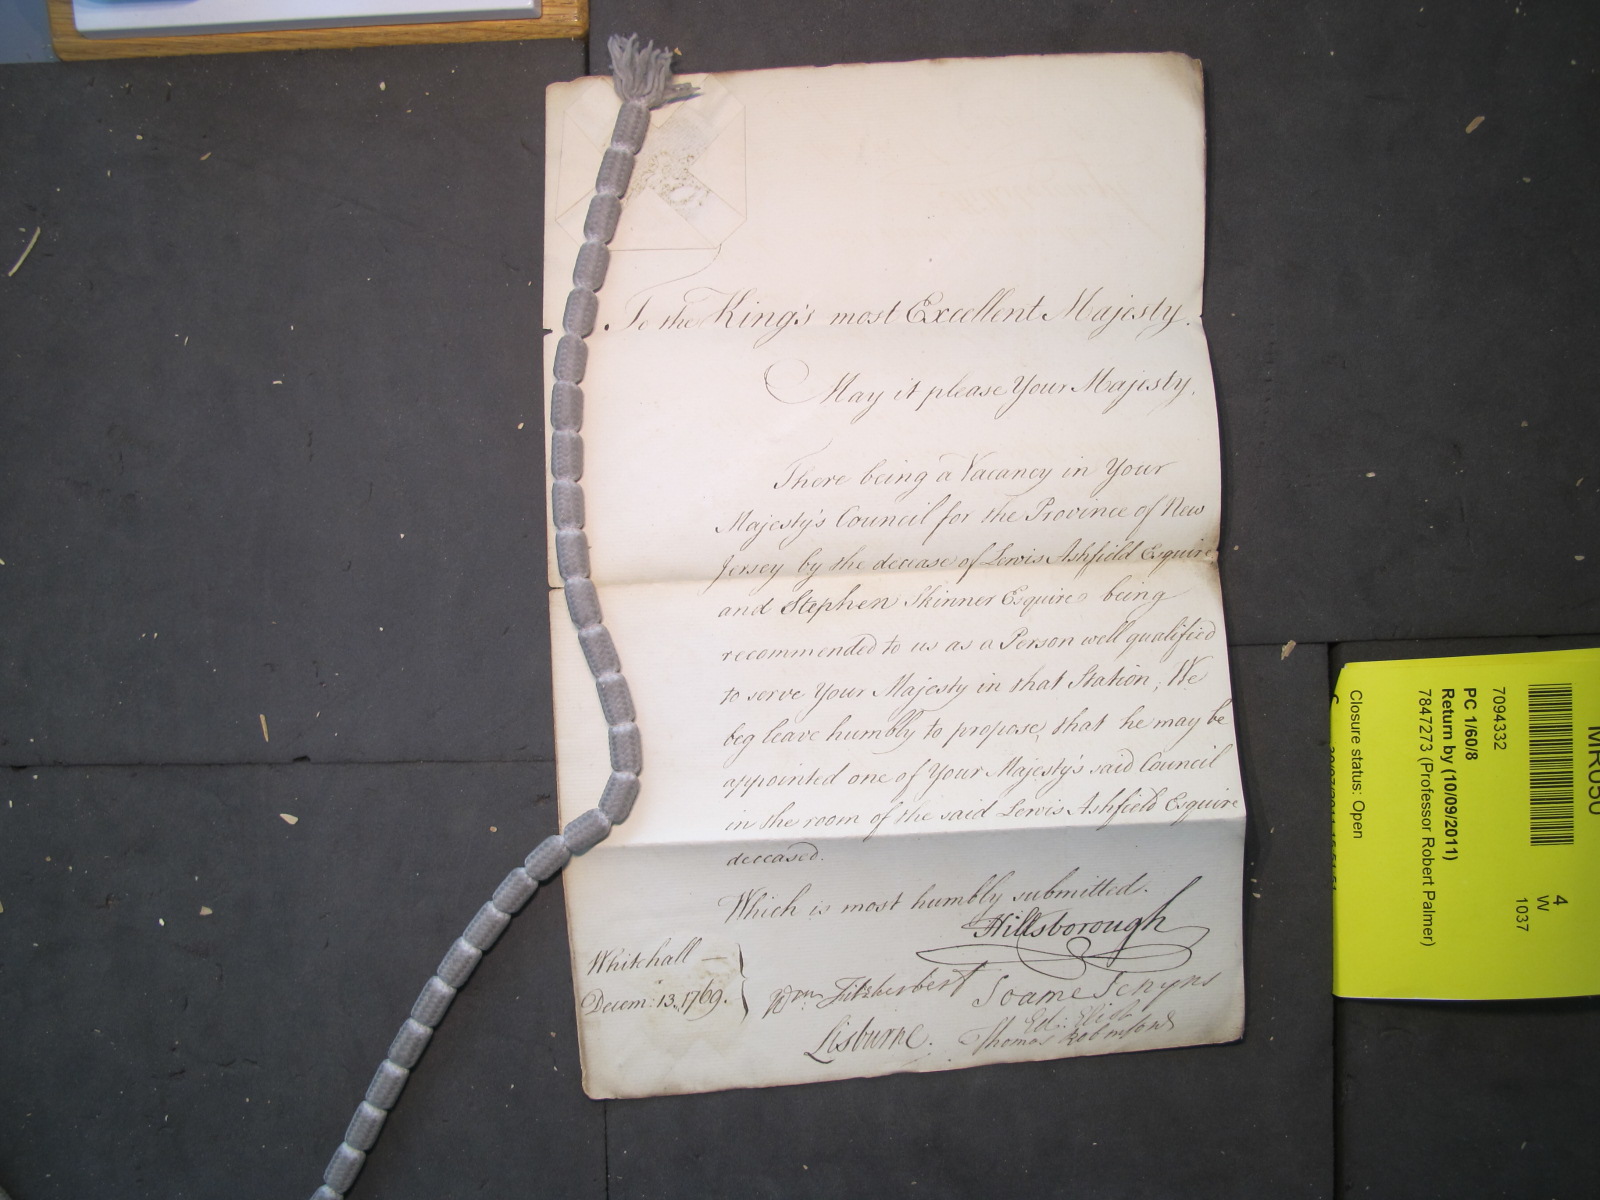 To the King's most Excellent Majesty.
May it please Your Majesty,
There being a Vacancy in Your
Majesty's Council for the Province of New
Jersey by the decease of Lewis Ashfield Esquire
and Stephen Skinner Esquire being
recommended to us as a Person well qualified
to serve Your Majesty in that Station, We
beg leave humbly to propose, that he may be
appointed one of Your Majesty's said Council
in the room of the said Lewis Ashfield Esquire
deceased.
Which is most humbly submitted.
Hillsborough
Whitehall —
Decem: 13. 1769.
Wm: Fitzherbert
Soame Jenyns
Ed: Eliot
Lisburne.
Thomas Robinson
MR050
4
W
1037
7094332
PC 1/60/8
Return by (10/09/2011)
7847273 (Professor Robert Palmer)
Closure status: Open